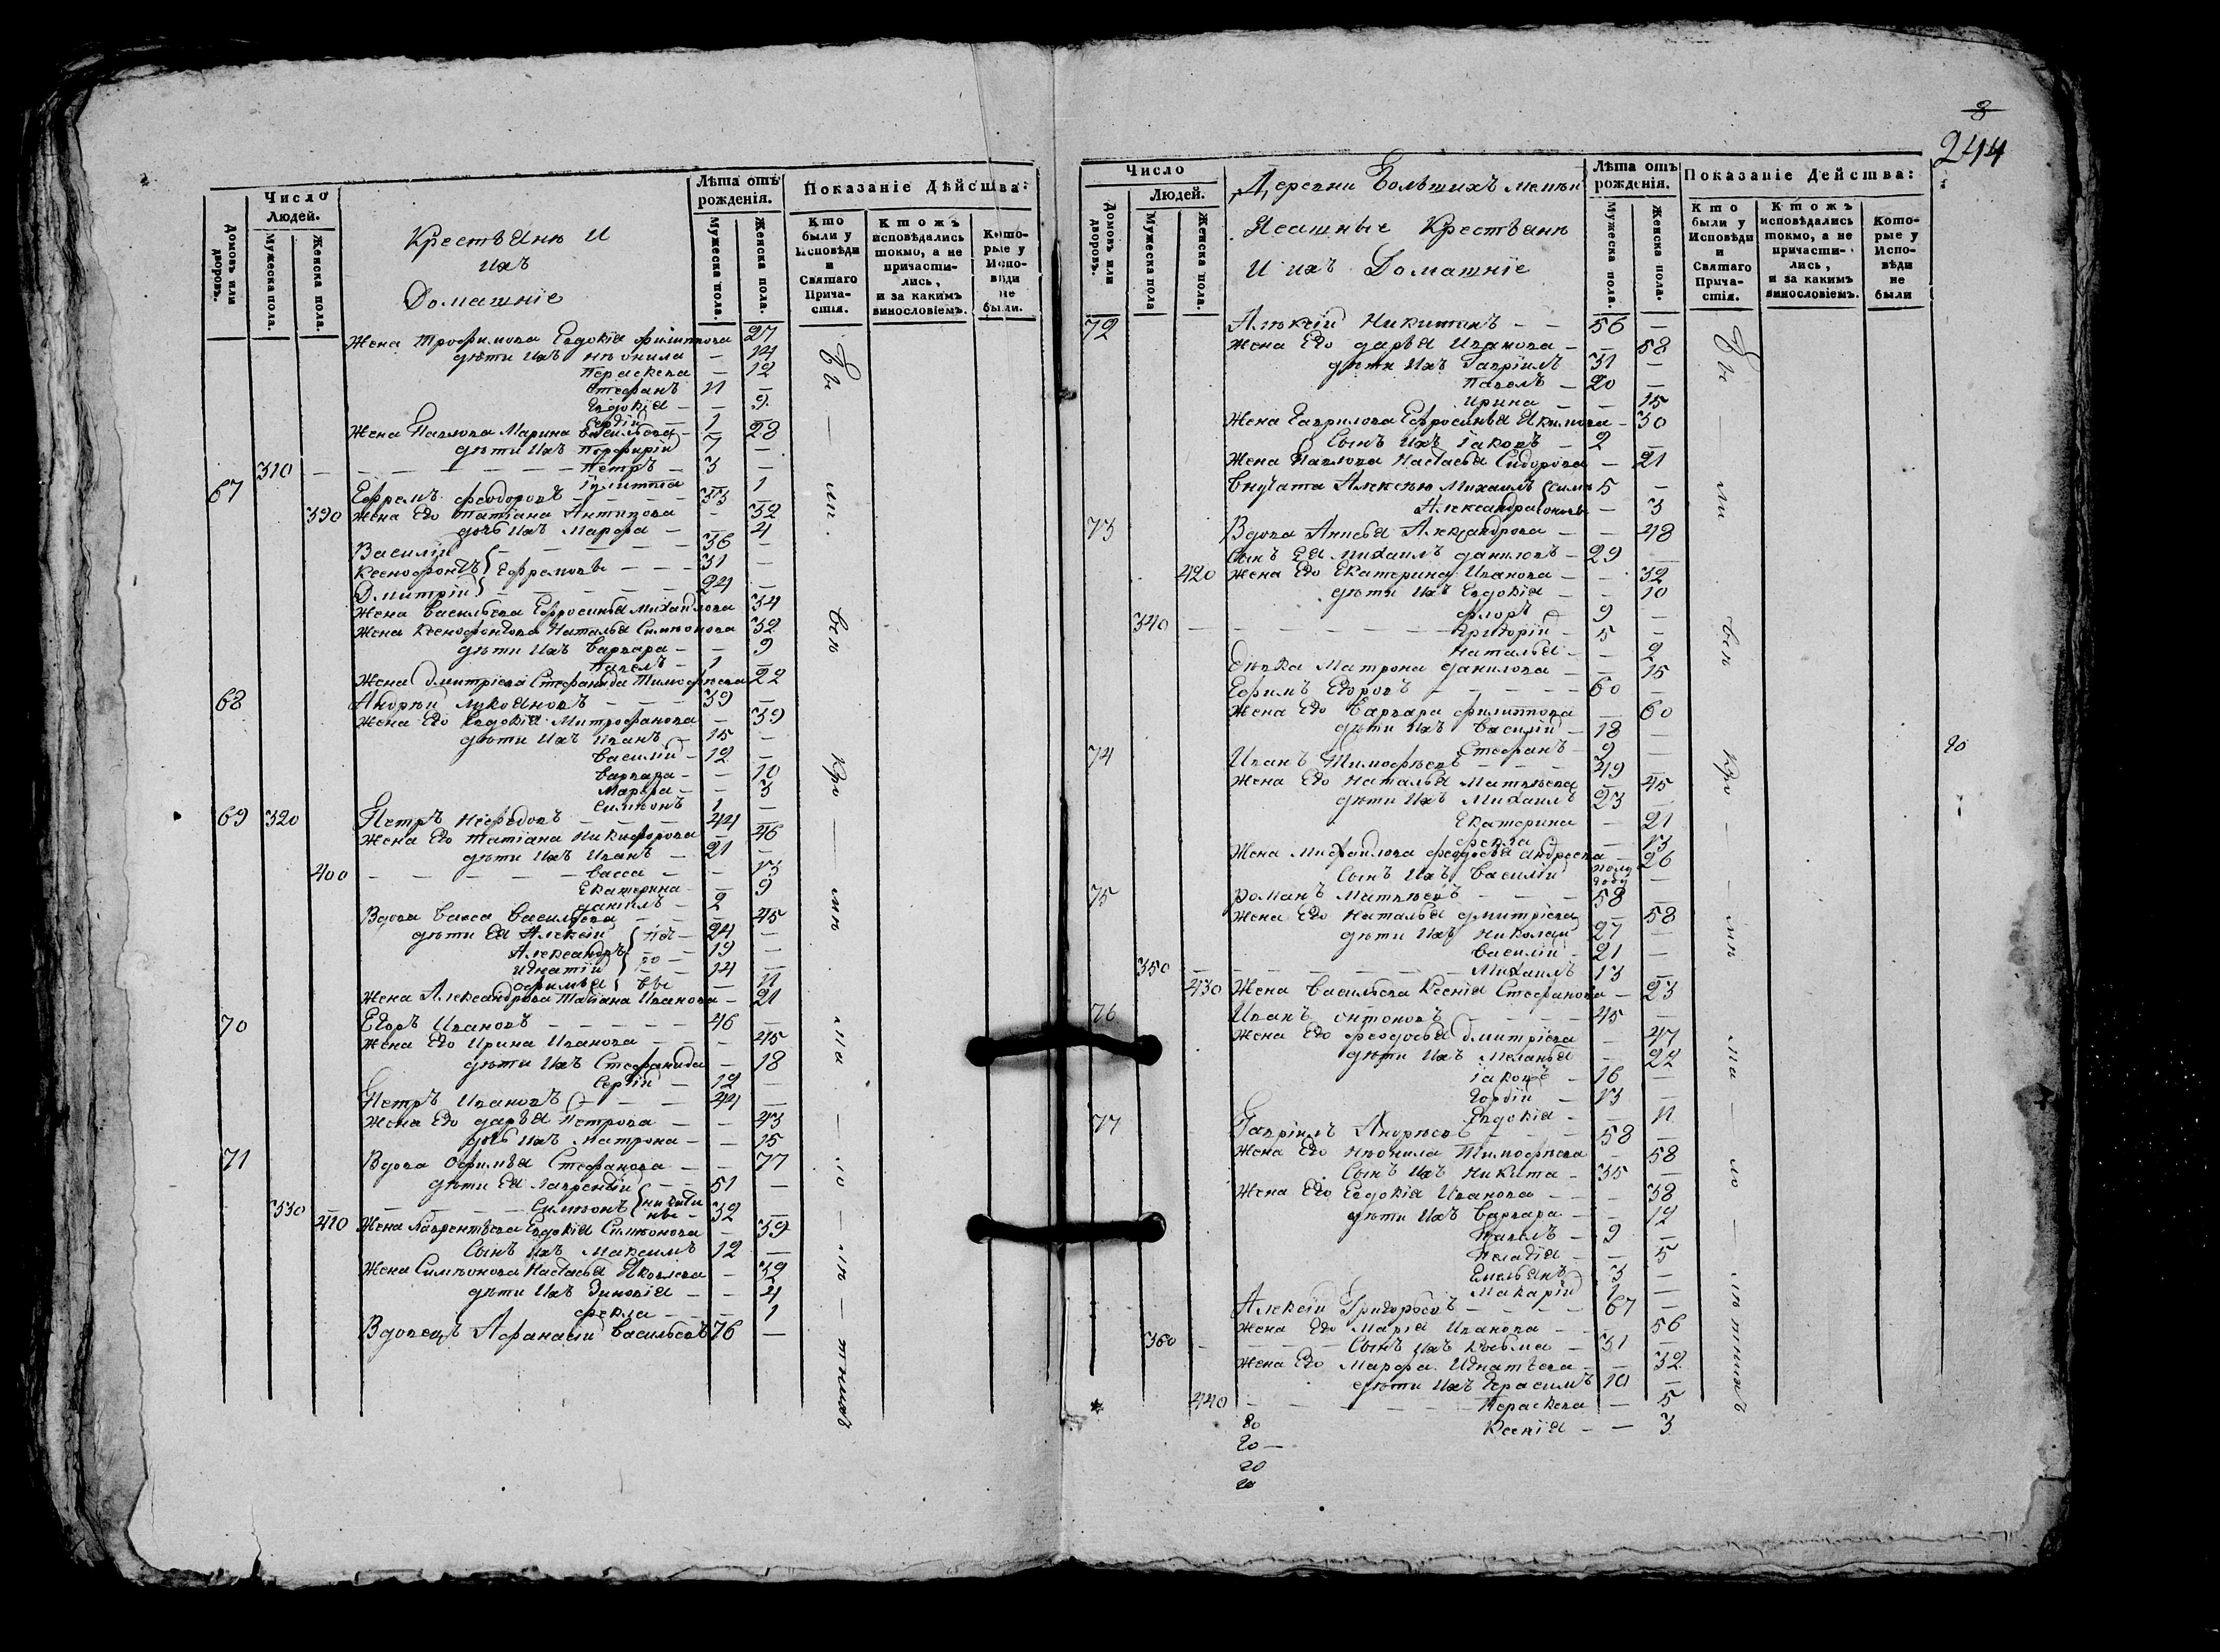 Число
Людей.
Домовъ или дворовъ.
Мужеска пола.
Женска пола.
Крестьяне и
ихъ
Домашніе
Лѣта отъ рожденія.
Мужеска пола.
Женска пола.
Показаніе Дѣйства:
Кто были у Исповѣди и Святаго Прича-стія.
Ктожъ исповѣдались токмо, а не причасти-лись, и за какимъ винословіемъ.
Кото-рые у Испо-вѣди не были.
Жена Трофимова Евдокіа Филиппова 27
дѣти ихъ Неонила — 14
Параскева — 12
Стефанъ 11 —
Евдокіа — — 9
Сергій — 1
Жена Павлова Марина Васильева — 28
дѣти ихъ Порфирій 7 —
310 — Петръ — 3 —
Іулитта 1
67 Ефремъ Феодоровъ — 53
390 Жена его Татіана Антипова — 52
дочь ихъ Марфа — — 4
Василій — 36 —
Ксенофонтъ Ефремовы — 31 —
Дмитрій — 24 —
Жена Васильева Ефросинья Михайлова 34
Жена Ксенофонтова Наталья Симеонова 32
дѣти ихъ Варвара — — 9
Павелъ — 1 —
Жена Дмитріева Стефанида Тимофеева 22
68 Андрей Лукояновъ — 39 —
Жена его Евдокіа Митрофанова — 39
дѣти ихъ Иванъ — 15 —
Василій — 12 —
Варвара — — 10
Марфа — — 3
Симеонъ 1 —
69 320 Петръ — 44 —
Жена его Татіана Никифорова — 46
дѣти ихъ Иванъ — 21 —
400 — Васса — — 13
Екатерина — — 9
Даніилъ — 2 —
Вдова Васса Васильева — — 45
дѣти ея Алексій — 24 —
Александръ — 19 —
Игнатій — 14 —
Офимья — 11
Жена Александрова Татіана Иванова — 21
70 Егоръ Ивановъ — 46 —
Жена его Ирина Иванова — — 45
дѣти ихъ Стефанида — 18
Сергій — 12 —
Петръ Ивановъ — 44 —
Жена его Дарья Петрова — — 43
дочь ихъ Матрона — — 15
71 Вдова Офимья Стефанова — — 77
дѣти ея Лаврентій — 51 —
330 — Симеонъ — 32 —
410 Жена Лаврентьева Евдокіа Симеонова — 39
Сынъ ихъ Максимъ 12 —
Жена Симеонова Настасья Яковлева — 32
дѣти ихъ Зиновіа — — 4
Фекла — — 1
Вдовецъ Афанасій Васильевъ 76 —
8
244
Число
Людей.
Домовъ или дворовъ.
Мужеска пола
Женска пола.
Деревни Большихъ
Ясашные Крестьяне
и ихъ Домашніе
Лѣта отъ рожденія.
Мужеска пола.
Женска пола.
Показаніе Действа:
Кто были у Исповѣди и Святаго Прича-стія.
Ктожъ исповѣдались токмо, а не причасти-лись, и за какимъ винословіемъ.
Кото-рые у Испо-вѣди не были
72 Алексій Никитинъ — 56 —
Жена его Дарья Иванова — — 58
дѣти ихъ Гавріилъ 31 —
Павелъ — 20 —
Ирина — — 15
Жена Гаврилова Ефросинья Акимова — 30
Сынъ ихъ Іаковъ — 2 —
Жена Павлова Настасья Сидорова — 21
Внучата Алексею Михаилъ 5 —
Александра — 3
73 Вдова Анисья Александрова — — 48
Сынъ ея Михаилъ Даниловъ — 29 —
420 Жена его Екатерина Иванова — — 32
дѣти ихъ Евдокіа — — 10
Флоръ 9 —
340 — Григорій — 5 —
Наталья — — 2
Девка Матрона Данилова — — 15
Ефимъ Егоровъ — 60 —
Жена его Варвара Филиппова — 60
дѣти ихъ Василій — 18 —
Стефанъ — 9 —
74 Иванъ Тимофеевъ — 49 —
Жена его Наталья Матвеева — 45
дѣти ихъ Михаилъ 23 —
Екатерина — 21
Фекла — — 13
Жена Михаилова Феодосья Андреева — 26
Сынъ ихъ Василій полу году —
75 Романъ Матвеевъ — 58 —
Жена его Наталья Дмитріева — 58
дѣти ихъ Николай 27 —
Василій — 21 —
350 — Михаилъ 13 —
430 Жена Васильева Ксеніа Стефанова — 23
76 Иванъ Онтоновъ — 45 —
Жена его Феодосья Дмитріева — 47
дѣти ихъ Меланья — 22
Іаковъ — 16 —
Гордій — 13 —
Евдокіа — — 11
77 Гавріилъ Андреевъ — 58 —
Жена его Неонила Тимофеева — 58
Сынъ ихъ Никита — 35 —
Жена его Евдокіа Иванова — — 38
дѣти ихъ Варвара — — 12
Павелъ — 9 —
Пелагіа — — 5
Емельянъ 3 —
Макарій 1 —
Алексій Григорьевъ — 67 —
Жена его Маріа Иванова — — 56
360 — Сынъ ихъ Косьма — 31 —
Жена его Марфа Игнатьева — — 32
дѣти ихъ Герасимъ 10 —
440 — Параскева — 5
Ксеніа — — 3
20
20 —
20
20
20